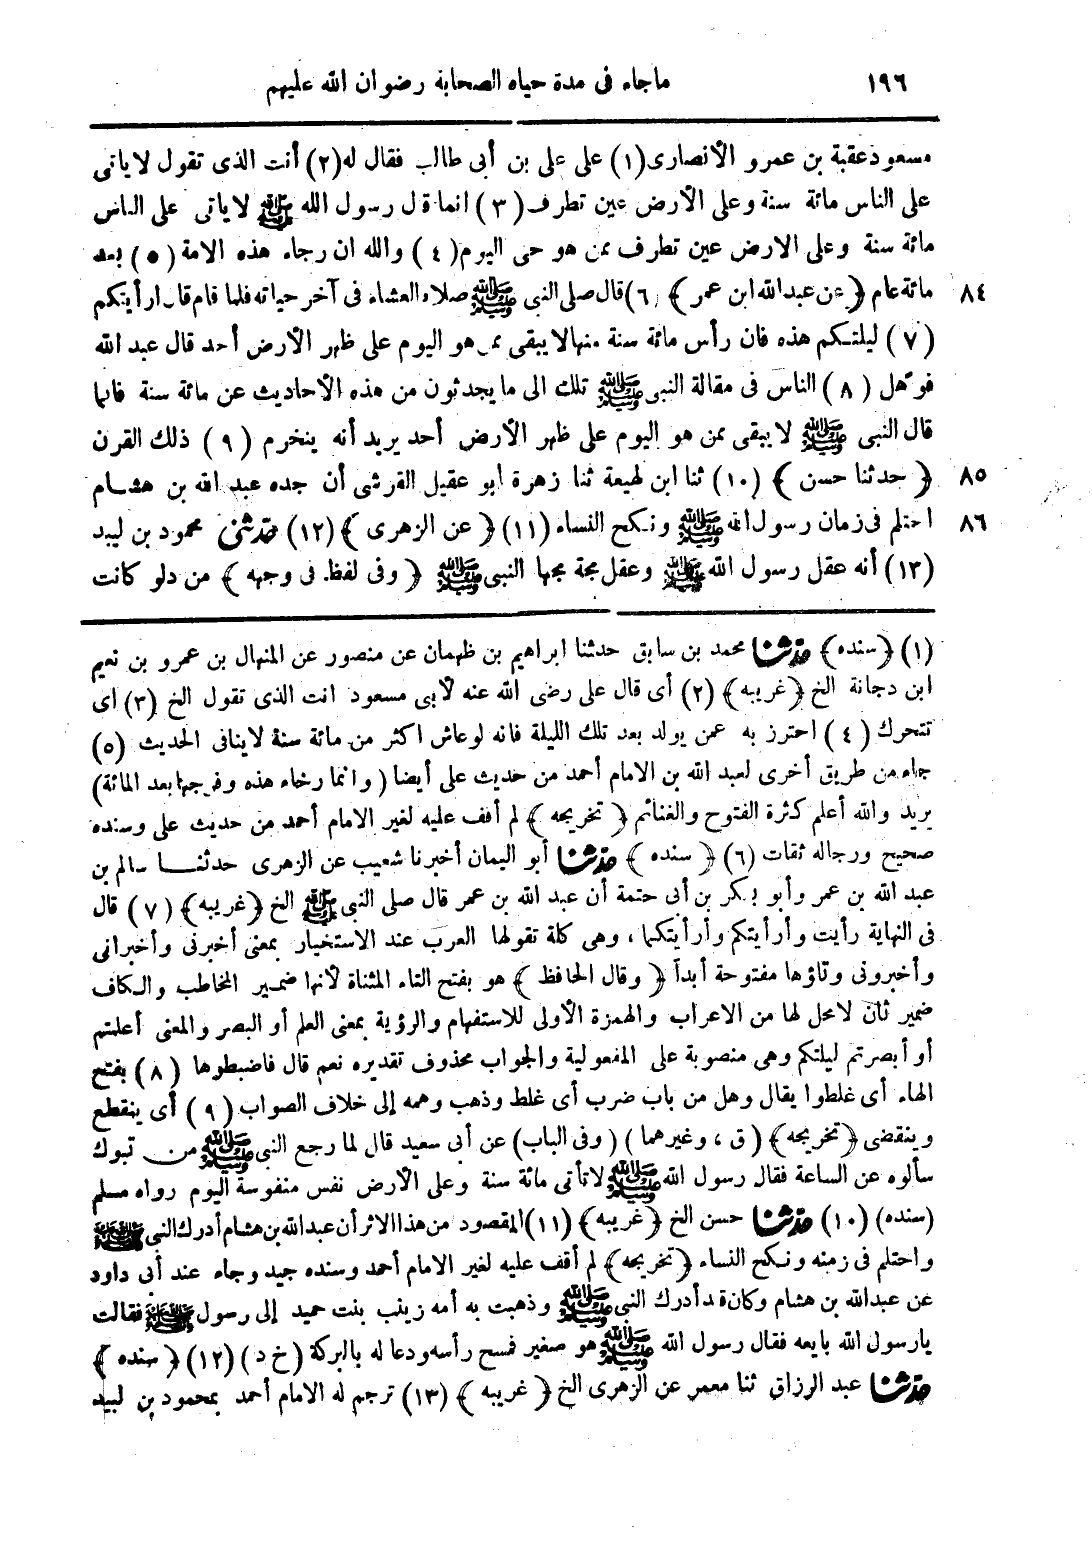 ١٩٦ ماجاء فى مدة حياه الصحابة رضوان الله عليهم
مسعود عقبة بن عمرو الأنصارى (١) على على بن أبى طالب فقال له (٢) أنت الذى تقول لا ياتى
على الناس مائة سنة وعلى الأرض عين تطرف (٣) انما قال رسول الله ﷺ لا ياتى على الناس
مائة سنة وعلى الارض عين تطرف ممن هو حى اليوم (٤) والله ان رجاء هذه الامة (٥) بعد
٨٤ مائة عام ﴿ عن عبد الله ابن عمر ﴾ (٦) قال صلى النبى ﷺ صلاة العشاء فى آخر حياته فلما قام قال ارأيتكم
(٧) ليلتكم هذه فان رأس مائة سنة منها لا يبقى ممن هو اليوم على ظهر الأرض أحد قال عبد الله
فوهل (٨) الناس فى مقالة النبى ﷺ تلك الى ما يحدثون من هذه الأحاديث عن مائة سنة فانما
قال النبى ﷺ لا يبقى ممن هو اليوم على ظهر الأرض أحد يريد أنه ينخرم (٩) ذلك القرن
٨٥ ﴿ حدثنا حسن ﴾ (١٠) ثنا ابن لهيعة ثنا زهرة أبو عقيل القرشى أن جده عبد الله بن هشام
٨٦ احتلم فى زمان رسول الله ﷺ ونكح النساء (١١) ﴿ عن الزهرى ﴾ (١٢) حدثنى محمود بن لبيد
(١٣) أنه عقل رسول الله ﷺ وعقل مجة مجها النبى ﷺ ﴿ وفى لفظ فى وجهه ﴾ من دلو كانت
(١) ﴿ سنده ﴾ حدثنا محمد بن سابق حدثنا ابراهيم بن طهمان عن منصور عن المنهال بن عمرو بن نعيم
ابن دجانة الخ ﴿ غريبه ﴾ (٢) أى قال على رضى الله عنه لأبى مسعود انت الذى تقول الخ (٣) اى
تتحرك (٤) احترز به عمن يولد بعد تلك الليلة فانه لو عاش اكثر من مائة سنة لا ينافى الحديث (٥)
جاء من طريق أخرى لعبد الله بن الامام أحمد من حديث على أيضا ( وانما رخاء هذه وفرجها بعد المائة)
يريد والله أعلم كثرة الفتوح والغنائم ﴿ تخريجه ﴾ لم أقف عليه لغير الامام أحمد من حديث على وسنده
صحيح ورجاله ثقات (٦) ﴿ سنده ﴾ حدثنا أبو اليمان أخبرنا شعيب عن الزهرى حدثنا سالم بن
عبد الله بن عمر وأبو بكر بن أبى حتمة أن عبد الله بن عمر قال صلى النبى ﷺ الخ ﴿ غريبه ﴾ (٧) قال
فى النهاية رأيت وأرأيتكم وأرأيتكما ، وهى كلة تقولها العرب عند الاستخبار بمعنى أخبرنى وأخبرانى
وأخبرونى وتاؤها مفتوحة أبدآ ﴿ وقال الحافظ ﴾ هو بفتح التاء المثناة لأنها ضمير المخاطب والكاف
ضمير ثان لا محل لها من الاعراب والهمزة الأولى للاستفهام والرؤية بمعنى العلم أو البصر والمعنى أعلمتم
أو أبصرتم ليلتكم وهى منصوبة على المفعولية والجواب محذوف تقديره نعم قال فاضبطوها (٨) بفتح
الهاء أى غلطوا يقال وهل من باب ضرب أى غلط وذهب وهمه إلى خلاف الصواب (٩) أى ينقطع
وينقضى ﴿ تخريجه ﴾ (ق ، وغيرهما ) (وفى الباب) عن أبى سعيد قال لما رجع النبى ﷺ من تبوك
سألوه عن الساعة فقال رسول الله ﷺ لا تأتى مائة سنة وعلى الأرض نفس منفوسة اليوم رواه مسلم
(سنده) (١٠) حدثنا حسن الخ ﴿ غريبه ﴾ (١١) المقصود من هذا الاثر أن عبد الله بن هشام أدرك النبى ﷺ
واحتلم فى زمنه ونكح النساء ﴿ تخريجه ﴾ لم أقف عليه لغير الامام أحمد وسنده جيد وجاء عند أبى داود
عن عبد الله بن هشام وكان قد أدرك النبى ﷺ وذهبت به أمه زينب بنت حميد إلى رسول ﷺ فقالت
يارسول الله بايعه فقال رسول الله ﷺ هو صغير فمسح رأسه ودعا له بالبركة (خ د) (١٢) ﴿ سنده ﴾
حدثنا عبد الرزاق ثنا معمر عن الزهرى الخ ﴿ غريبه ﴾ (١٣) ترجم له الامام أحمد بمحمود بن لبيد